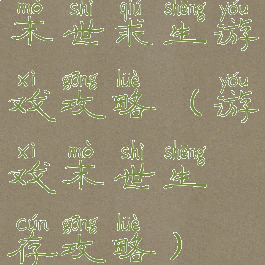 mò shì qiú shēng yóu
末世求生游
xì gōng lüè yóu
戏攻略（游
xì mò shì shēng
戏末世生
cún gōng lüè
存攻略）